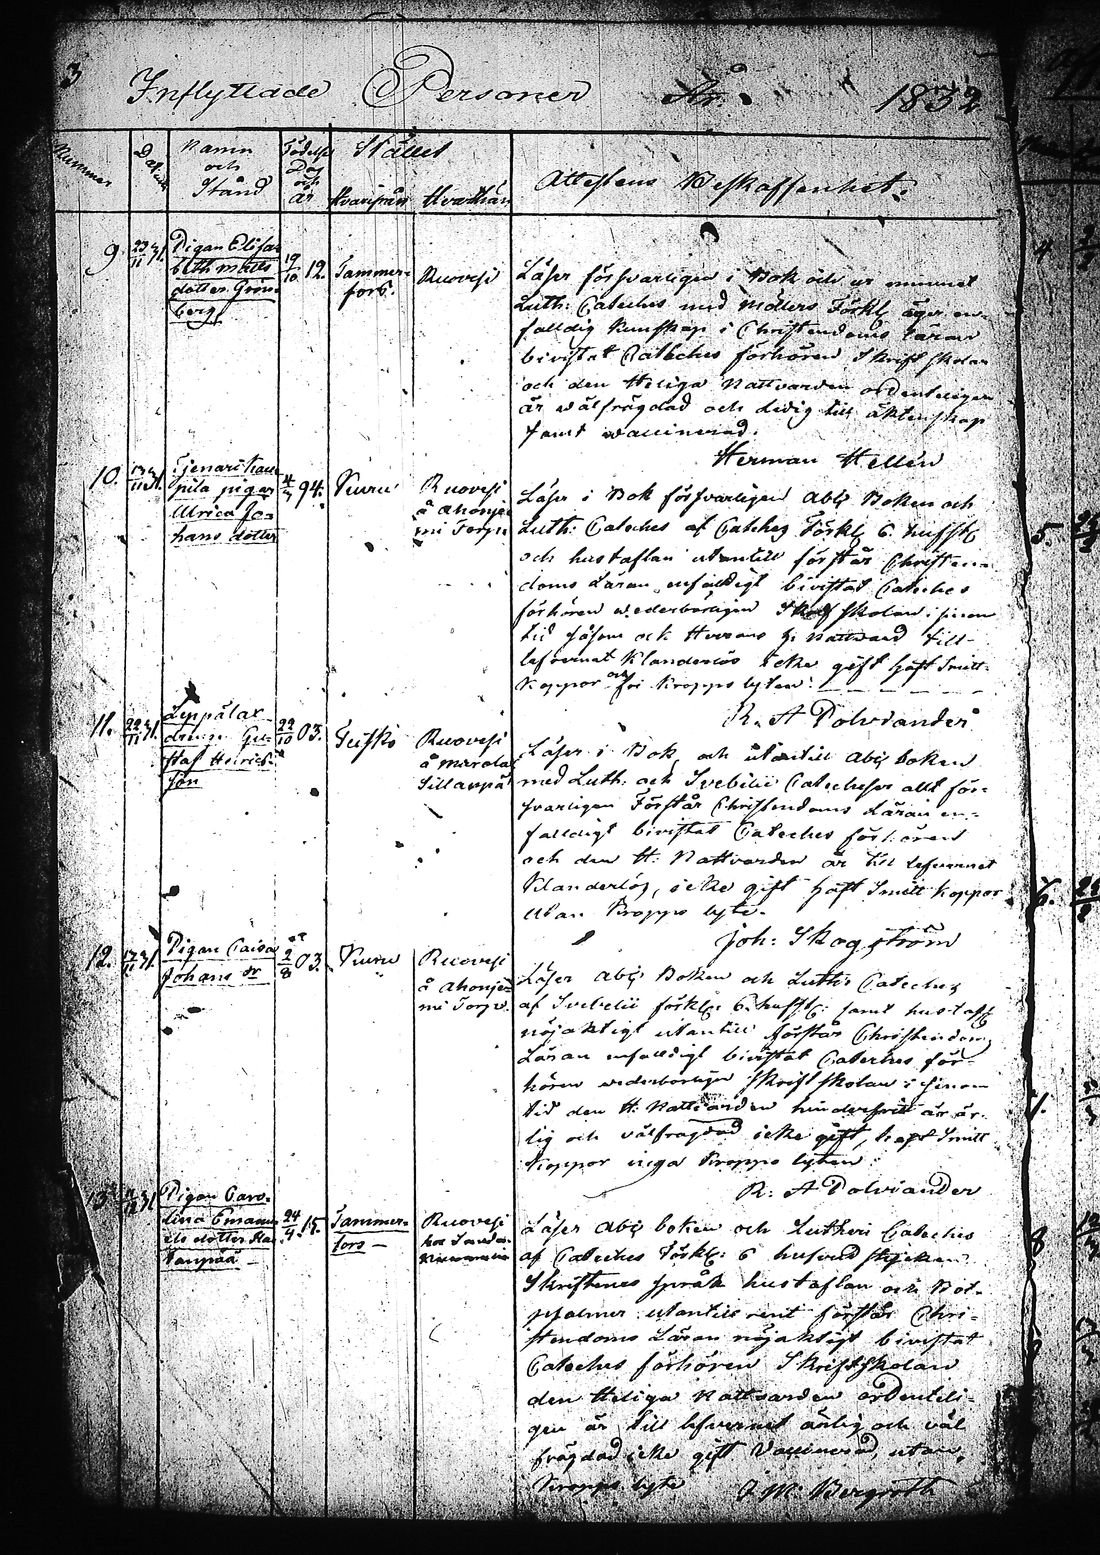 3
Inflyttade Personer År 1832
Nummer
Datum
Namn
och
Stånd
Födelse
Dag
och
År
Stället
Hvarifrån Hvarthän
Attestens Beskaffenhet.
9. 23/11 31. Pigan Elisa-
beth Matts
dotter Grön-
berg
19/10 12. Tammer-
fors. Ruovesi
Läser försvarligen i Bok och ur minnet
Luth: Cateches med Möllers Förkl äger en-
faldig Kunskap i Christendoms Läran
bivistat Cateches förhören Skriftskolan
och den Heliga Nattvarden ordenteligen
är välfrägdad och ledig till äktenskap
samt vaccinerad.
Herman Hellén
10. 13/11 31.
pigan
Ulrica Jo-
hans dotter
4/7 94. Kuru Ruovesi
å Ahonje-
mi Torp
Läser i Bok försvarligen Abc Boken och
Luth: Cateches af Cateches Förkl 6 hufst
och hustaflan utantill förstår Christen-
doms Läran enfaldigt bivistat Cateches
förhören vederbörligen skolan i sinom
tid såsom ock Herrans H: Nattvard till
lefvernet Klanderlös icke gift haft Smitt-
koppor och fri kropps lyten.
R. A Polviander
11. 22/11 31. Leppälax
Gu-
staf Henrics-
son
22/10 03. Ruovesi
å
Läser i Bok och utantill Abc boken
med Luth: och Svebilii Catecheser allt för-
svarligen Förstår Christendoms Läran en-
faldigt bivistat Cateches förhören
och den H: Nattvarden är till lefvernet
Klanderlös, icke gift haft Smitt koppor
utan Kropps lyte.
Joh: Skogström
12. 31. Pigan Caisa
Johans dr
2/8 03. Kuru Ruovesi
å Ahonje-
mi Torp.
Läser Abc Boken och Luth: Cateches
af Svebelii förkl: 6 hufst: samt hustafl
nöjaktigt utantill förstår Christendoms
Läran enfaldigt bivistat Cateches för-
hören vederbörligen Skriftskolan i sinom
tid den H: Nattvarden hinderfritt är är-
lig och välfrägdad icke gift, haft Smitt
koppor inga Kropps lyten
R: A Polviander
13 31 Pigan Caro-
lina Emanu-
els dotter
24/4 15. Tammer-
fors — Ruovesi
hos
Läser Abc boken och Lutheri Cateches
af Cateches Förkl: 6 hufvud stycken
Skriftenes språk hustaflan och Bot-
psalmer utantill rent förstår Chri-
stendoms Läran nöjaktigt bivistat
Cateches förhören Skriftskolan
den Heliga Nattvarden ordenteli-
gen är till lefvernet ärlig och väl
frägdad icke gift Vaccinerad, utan
Kropps lyte J M: Bergroth
4
5.
6.
7.
8